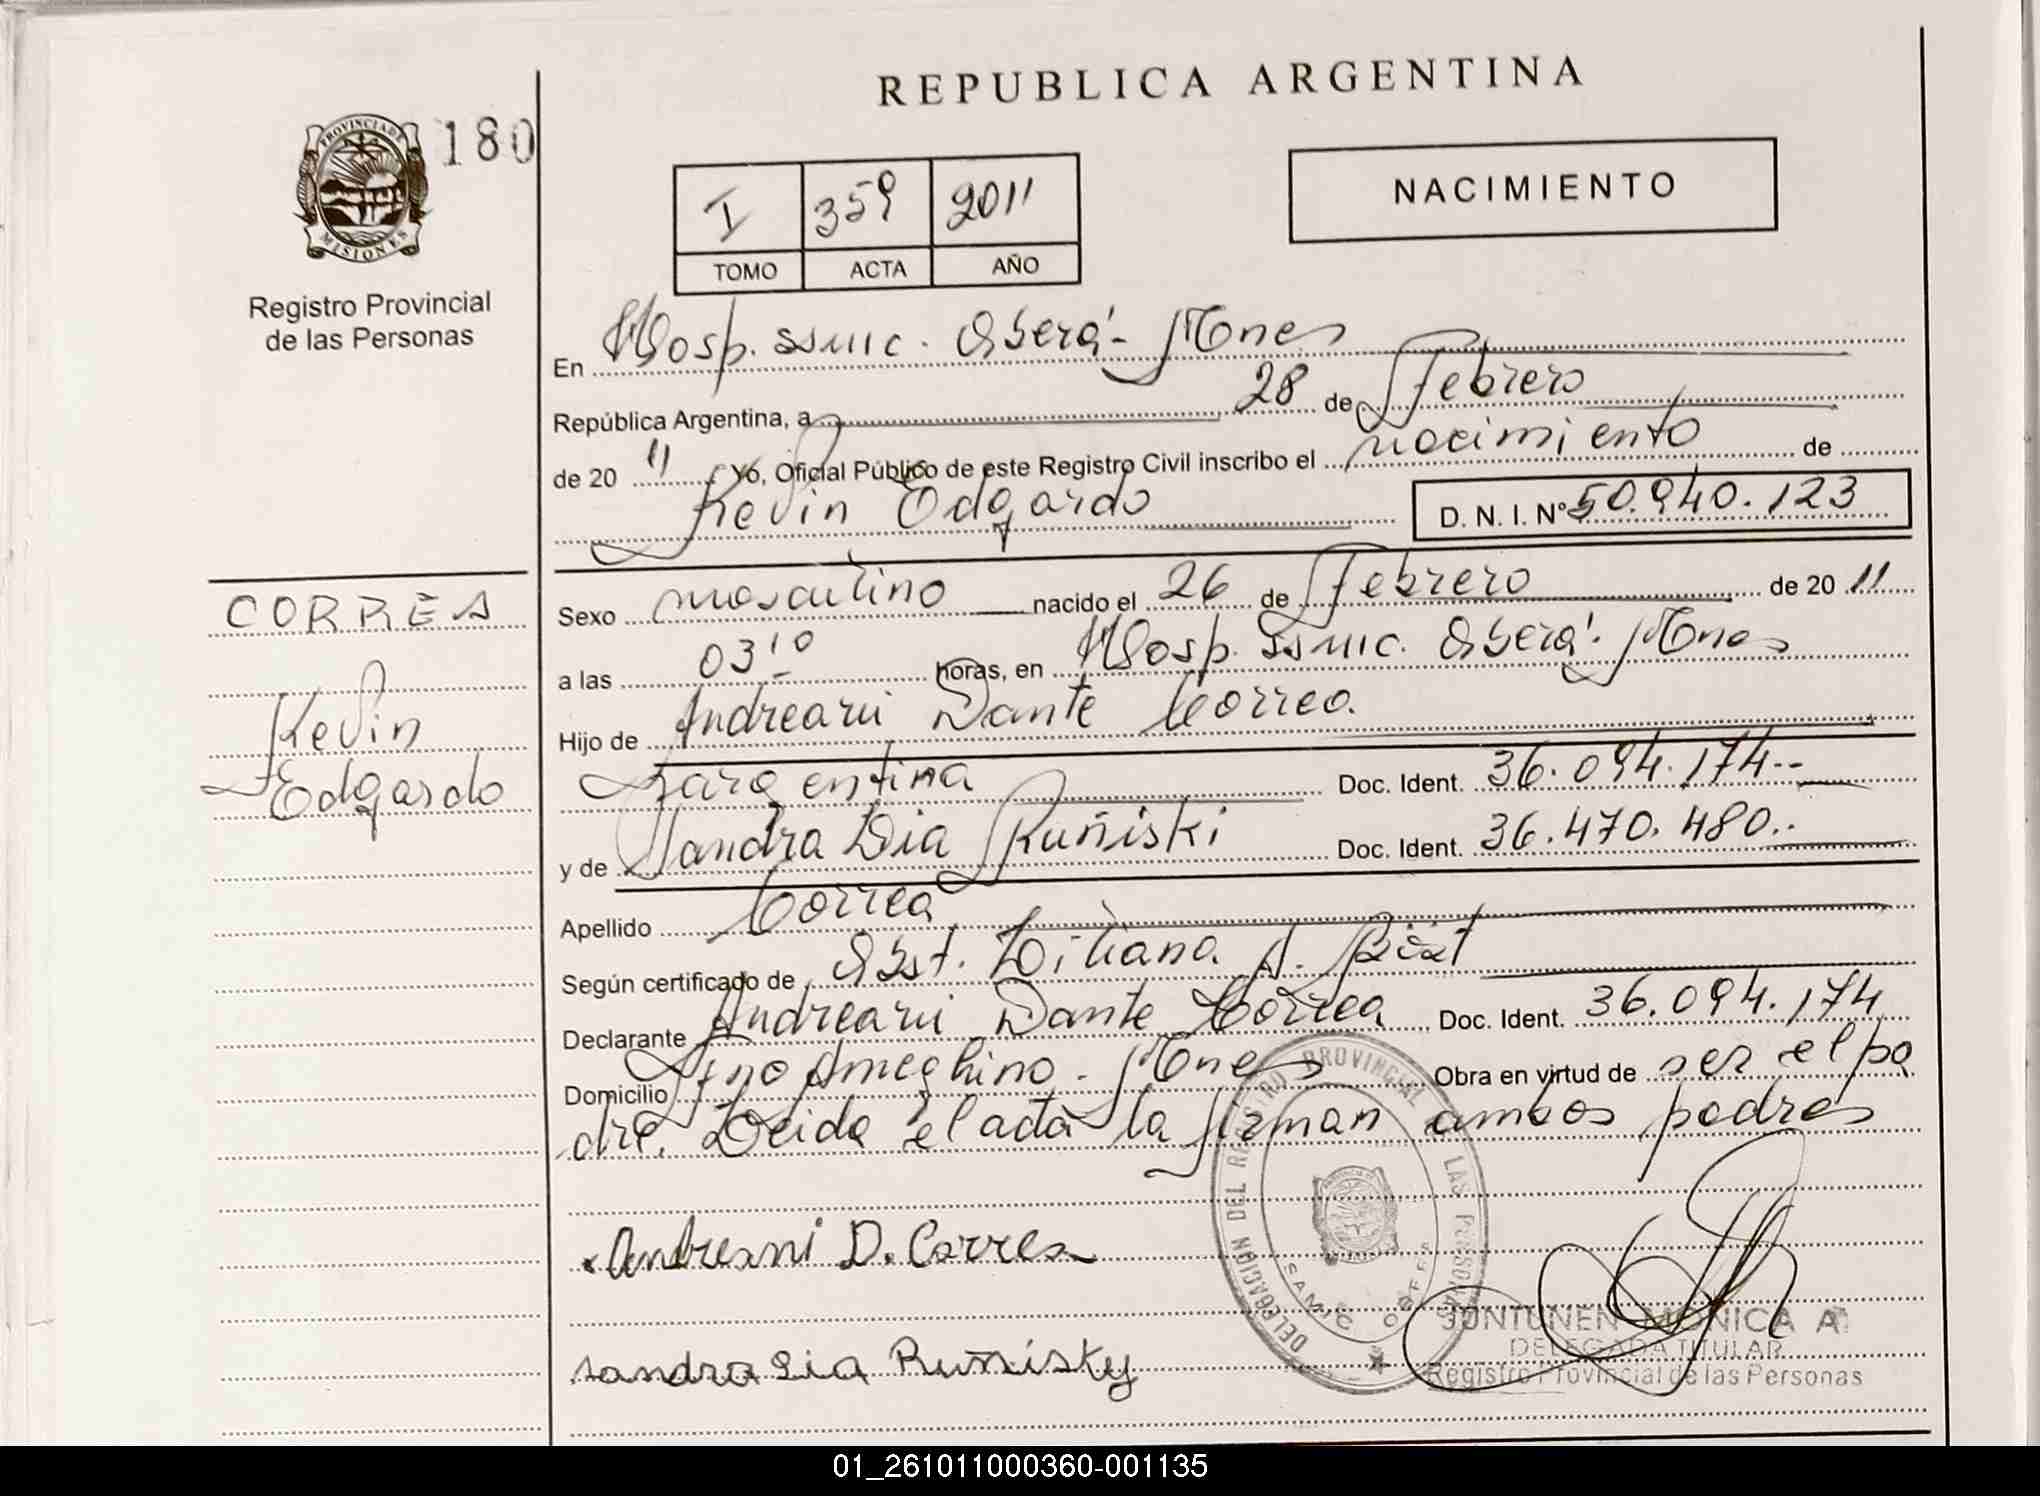 REPUBLICA ARGENTINA
PROVINCIA DE
MISIONES
180
Registro Provincial
de las Personas
I 359 2011
TOMO ACTA AÑO
NACIMIENTO
En Hosp. SSMIC. Oberá - Mnes
República Argentina, a 28 de Febrero
de 20 11 Yo, Oficial Público de este Registro Civil inscribo el nacimiento de
Kevin Edgardo D. N. I. Nº 50.940.123
CORREA
Kevin
Edgardo
Sexo masculino nacido el 26 de Febrero de 20 11
a las 03:10 horas, en Hosp. SSMIC. Oberá - Mnes
Hijo de Andreani Dante Correa.
Argentina Doc. Ident. 36.094.174--
y de Sandra Lia Ruñiski Doc. Ident. 36.470.480..
Apellido Correa
Según certificado de Obst. Liliana A.
Declarante Andreani Dante Correa Doc. Ident. 36.094.174
Domicilio Fno Ameghino - Mnes Obra en virtud de ser el pa
dre. Leida el acta la firman ambos padres
Andreani D. Correa
Sandra Lia Ruñisky
DELEGACION DEL REGISTRO PROVINCIAL DE LAS PERSONAS
SAMIC
JUNTUNEN MONICA A
DELEGADA TITULAR
Registro Provincial de las Personas
01_261011000360-001135